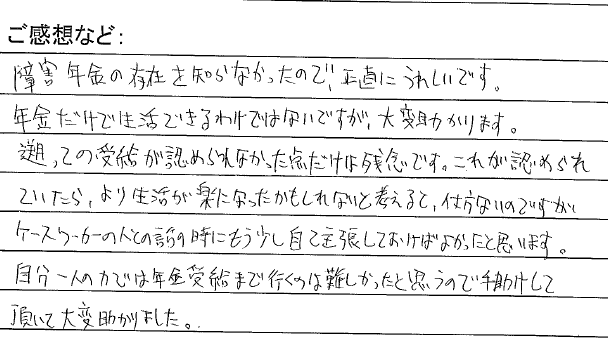 ご感想など:
障害年金の存在を知らなかったので、正直にうれしいです。
年金だけで生活できるわけではないですが、大変助かります。
遡っての受給が認められなかった点だけは残念です。これが認められ
ていたら、より生活が楽になったかもしれないと考えると、仕方ないのですが
ケースワーカーの人との話の時にもう少し自己主張しておけばよかったと思います。
自分一人の力では年金受給まで行くのは難しかったと思うので手助けして
頂いて大変助かりました。